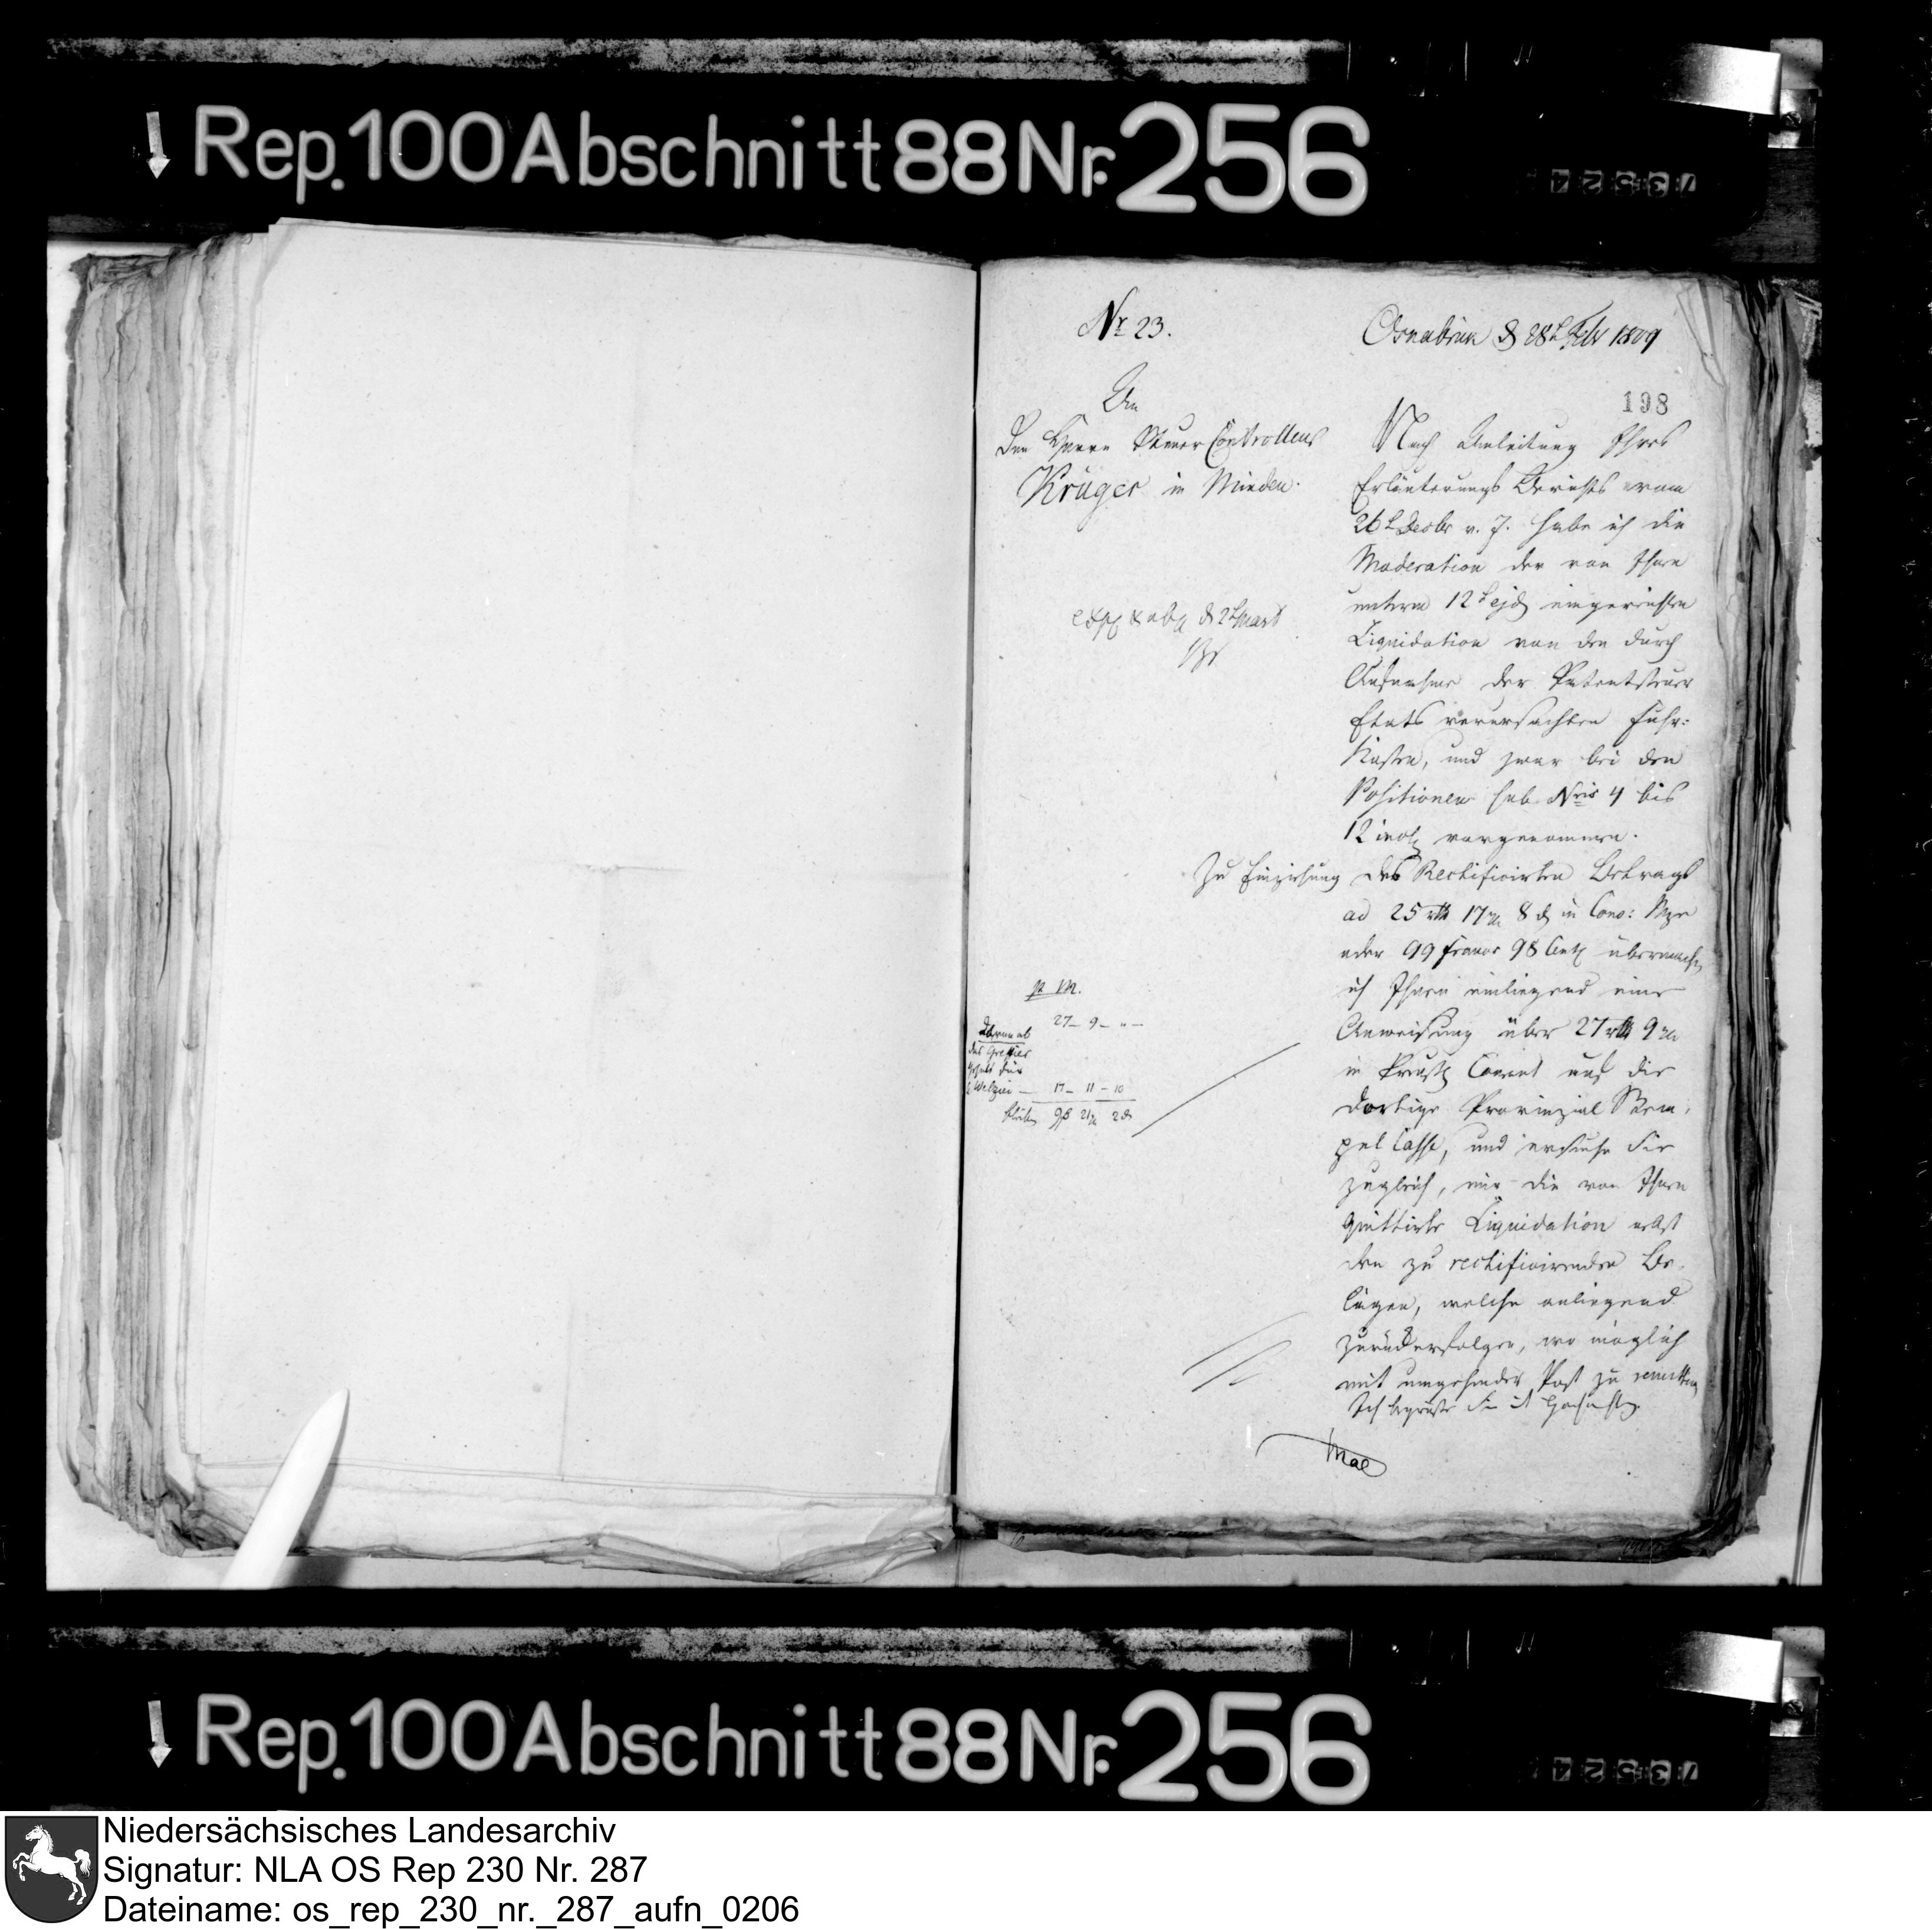 Rep. 100 Abschnitt 88 Nr. 256
73524
Nr 23.
Osnabrük d 28t Febr 1809
198
An
Den Herrn Steuer Controlleur
Krüger in Minden.
expd & abg d 2t Mart
Nach Anleitung Ihres
Erläuterungs Berichts vom
26t Decbr v. J. habe ich die
Moderation der von Ihnen
unterm 12t ejd eingereichten
Liquidation von den durch
Aufnahme der Patentsteuer
Etats verursachten Fuhr:
Kosten, und zwar bei den
Positionen sub Nris 4 bis
12 incl vorgenommen.
Zu Einziehung des Rectificirten Betrags
ad 25 rth 17 gr 8 d in Conv: Mze
oder 99 Francs 98 Cent übermache
ich Ihnen einliegend eine
Anweisung über 27 rth 9 gr
in Preuß Courant auf die
dortige Provinzial Stem,
pel Casse, und ersuche Sie
zugleich, mir die von Ihnen
quittirte Liquidation nebst
den zu rectificirenden Be,
lägen, welche anliegend
zurückerfolgen, wo möglich
mit umgehender Post zu remitten
Ich begrüße Sie mit Hochachtg
Mae
p M.
27 - 9 - " -
Davon ab
das Greffier
Gehalt für
17 - 11 - 10
bleiben 9 21 2
Rep. 100 Abschnitt 88 Nr. 256
73524
Niedersächsisches Landesarchiv
Signatur: NLA OS Rep 230 Nr. 287
Dateiname: os_rep_230_nr._287_aufn_0206